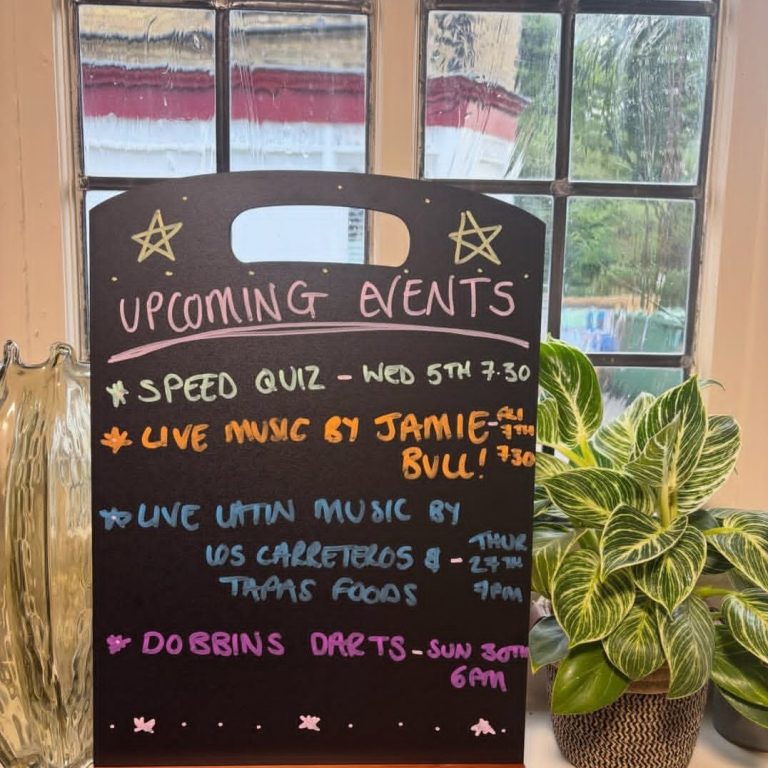 UPCOMING EVENTS
SPEED QUIZ - WED 5TH 7.30
LIVE MUSIC BY JAMIE BULL! - FRI 7TH 730
LIVE LATIN MUSIC BY
LOS CARRETEROS & - THUR 27TH
TAPAS FOODS 7PM
DOBBINS DARTS - SUN 30TH
6PM